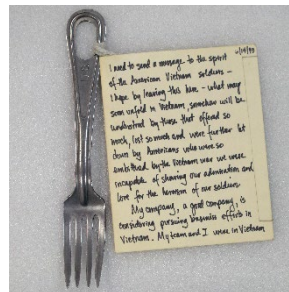 6/19/93
I need to send a message to the spirit
of the American Vietnam soldiers —
I hope by leaving this here - what may
soon unfold in Vietnam, somehow will be
understood by those that offered so
much, lost so much and were further let
down by Americans who were so
ambushed by the Vietnam war we were
incapable of sharing our admiration and
love for the heroism of our soldiers.
My company, a good company, is
considering pursuing business efforts in
Vietnam. My team and I were in Vietnam